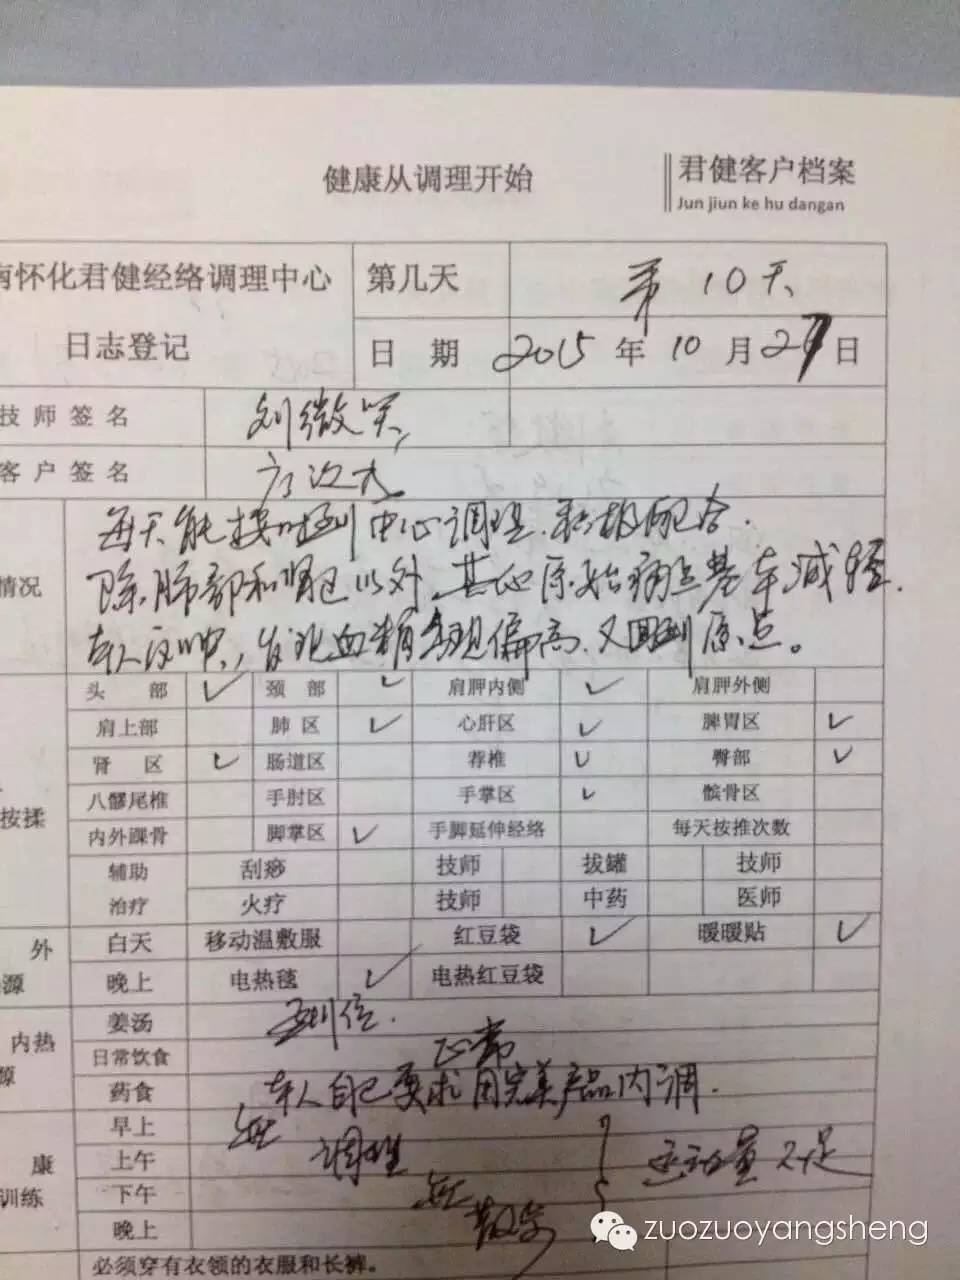 健康从调理开始
君健客户档案
Jun jiun ke hu dangan
南怀化君健经络调理中心
日志登记
第几天 第10天
日 期 2015年10月27日
技师签名 刘微笑
客户签名
情况
每天能按时到中心调理.积极配合.
除肺部和肾区以外.其他原始病点基本减轻.
本人反映,发现血糖 偏高.又回到原点。
按揉
头 部 ✓ 颈 部 ✓ 肩胛内侧 ✓ 肩胛外侧
肩上部 肺 区 ✓ 心肝区 ✓ 脾胃区 ✓
肾 区 ✓ 肠道区 荐椎 ✓ 臀部 ✓
八髎尾椎 手肘区 手掌区 ✓ 髌骨区
内外踝骨 脚掌区 ✓ 手脚延伸经络 每天按推次数
辅助 刮痧 技师 拔罐 技师
治疗 火疗 技师 中药 医师
外 白天 移动温敷服 红豆袋 ✓ 暖暖贴 ✓
源 晚上 电热毯 ✓ 电热红豆袋
内热
源
姜汤 到位.
日常饮食 正常
药食 本人自己要求用完美产品内调.
康
训练
早上 无
上午 调理 运动量不足
下午 无
晚上 散步
必须穿有衣领的衣服和长裤。
zuozuoyangsheng